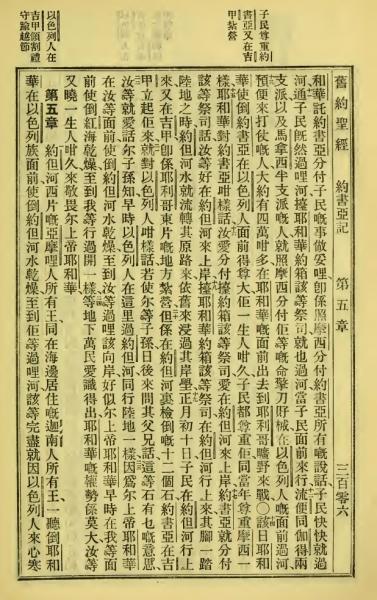 舊約聖經 約書亞記 第五章 三百零六
子民尊重約
書亞又在吉
甲紮營
以色列人在
吉甲領割禮
守踰越節
和華託約書亞分付子民嘅事做妥哩卽係照摩西分付約書亞所有嘅說話子民快快就過
河通子民旣然過哩河擡耶和華約箱該等祭司就也過河當子民面前來行流便同伽得兩
支派以及馬拿西半支派嘅人就照摩西分付佢等嘅命拏刀野械在以色列人嘅面前過河
預便來打仗嘅人大約有四萬咁多在耶和華嘅面前出去到耶利哥曠野來戰○該日耶和
華使倒約書亞在以色列人面前得尊大佢一生人咁久子民都尊重佢同當年尊重摩西一
樣耶和華對約書亞咁樣話汝愛分付擡約箱該等祭司愛在約但河來上岸約書亞就分付
該等祭司話汝等好在約但河來上岸擡耶和華約箱該等祭司在約但河行上來其腳一踏
陸地之時約但河水就流轉其原路來依舊來浸過其岸唇正月初十日子民在約但河行上
來又在吉甲卽係耶利哥東片嘅地方紮營但係在約但河裏檢倒嘅十二個石約書亞在吉
甲立起佢來就對以色列人咁樣話若使尔等子孫日後來問其父兄話這等石有乜嘅意思
汝等就愛話尔子孫知早時以色列人在這里過約但河同行陸地一樣因爲尔上帝耶和華
在汝等面前使倒約但河水乾燥至到汝等過哩該向岸好似尔上帝耶和華早時在我等面
前使倒紅海乾燥至到我等行過開一樣等地下萬民愛識得出耶和華嘅權勢係莫大汝等
又曉一生人咁久來敬畏尔上帝耶和華
第五章 約但河西片嘅亞摩哩人所有王同在海邊居住嘅迦南人所有王一聽倒耶和
華在以色列族面前使倒約但河水乾燥至到佢等過哩河該等完盡就因以色列人來心寒